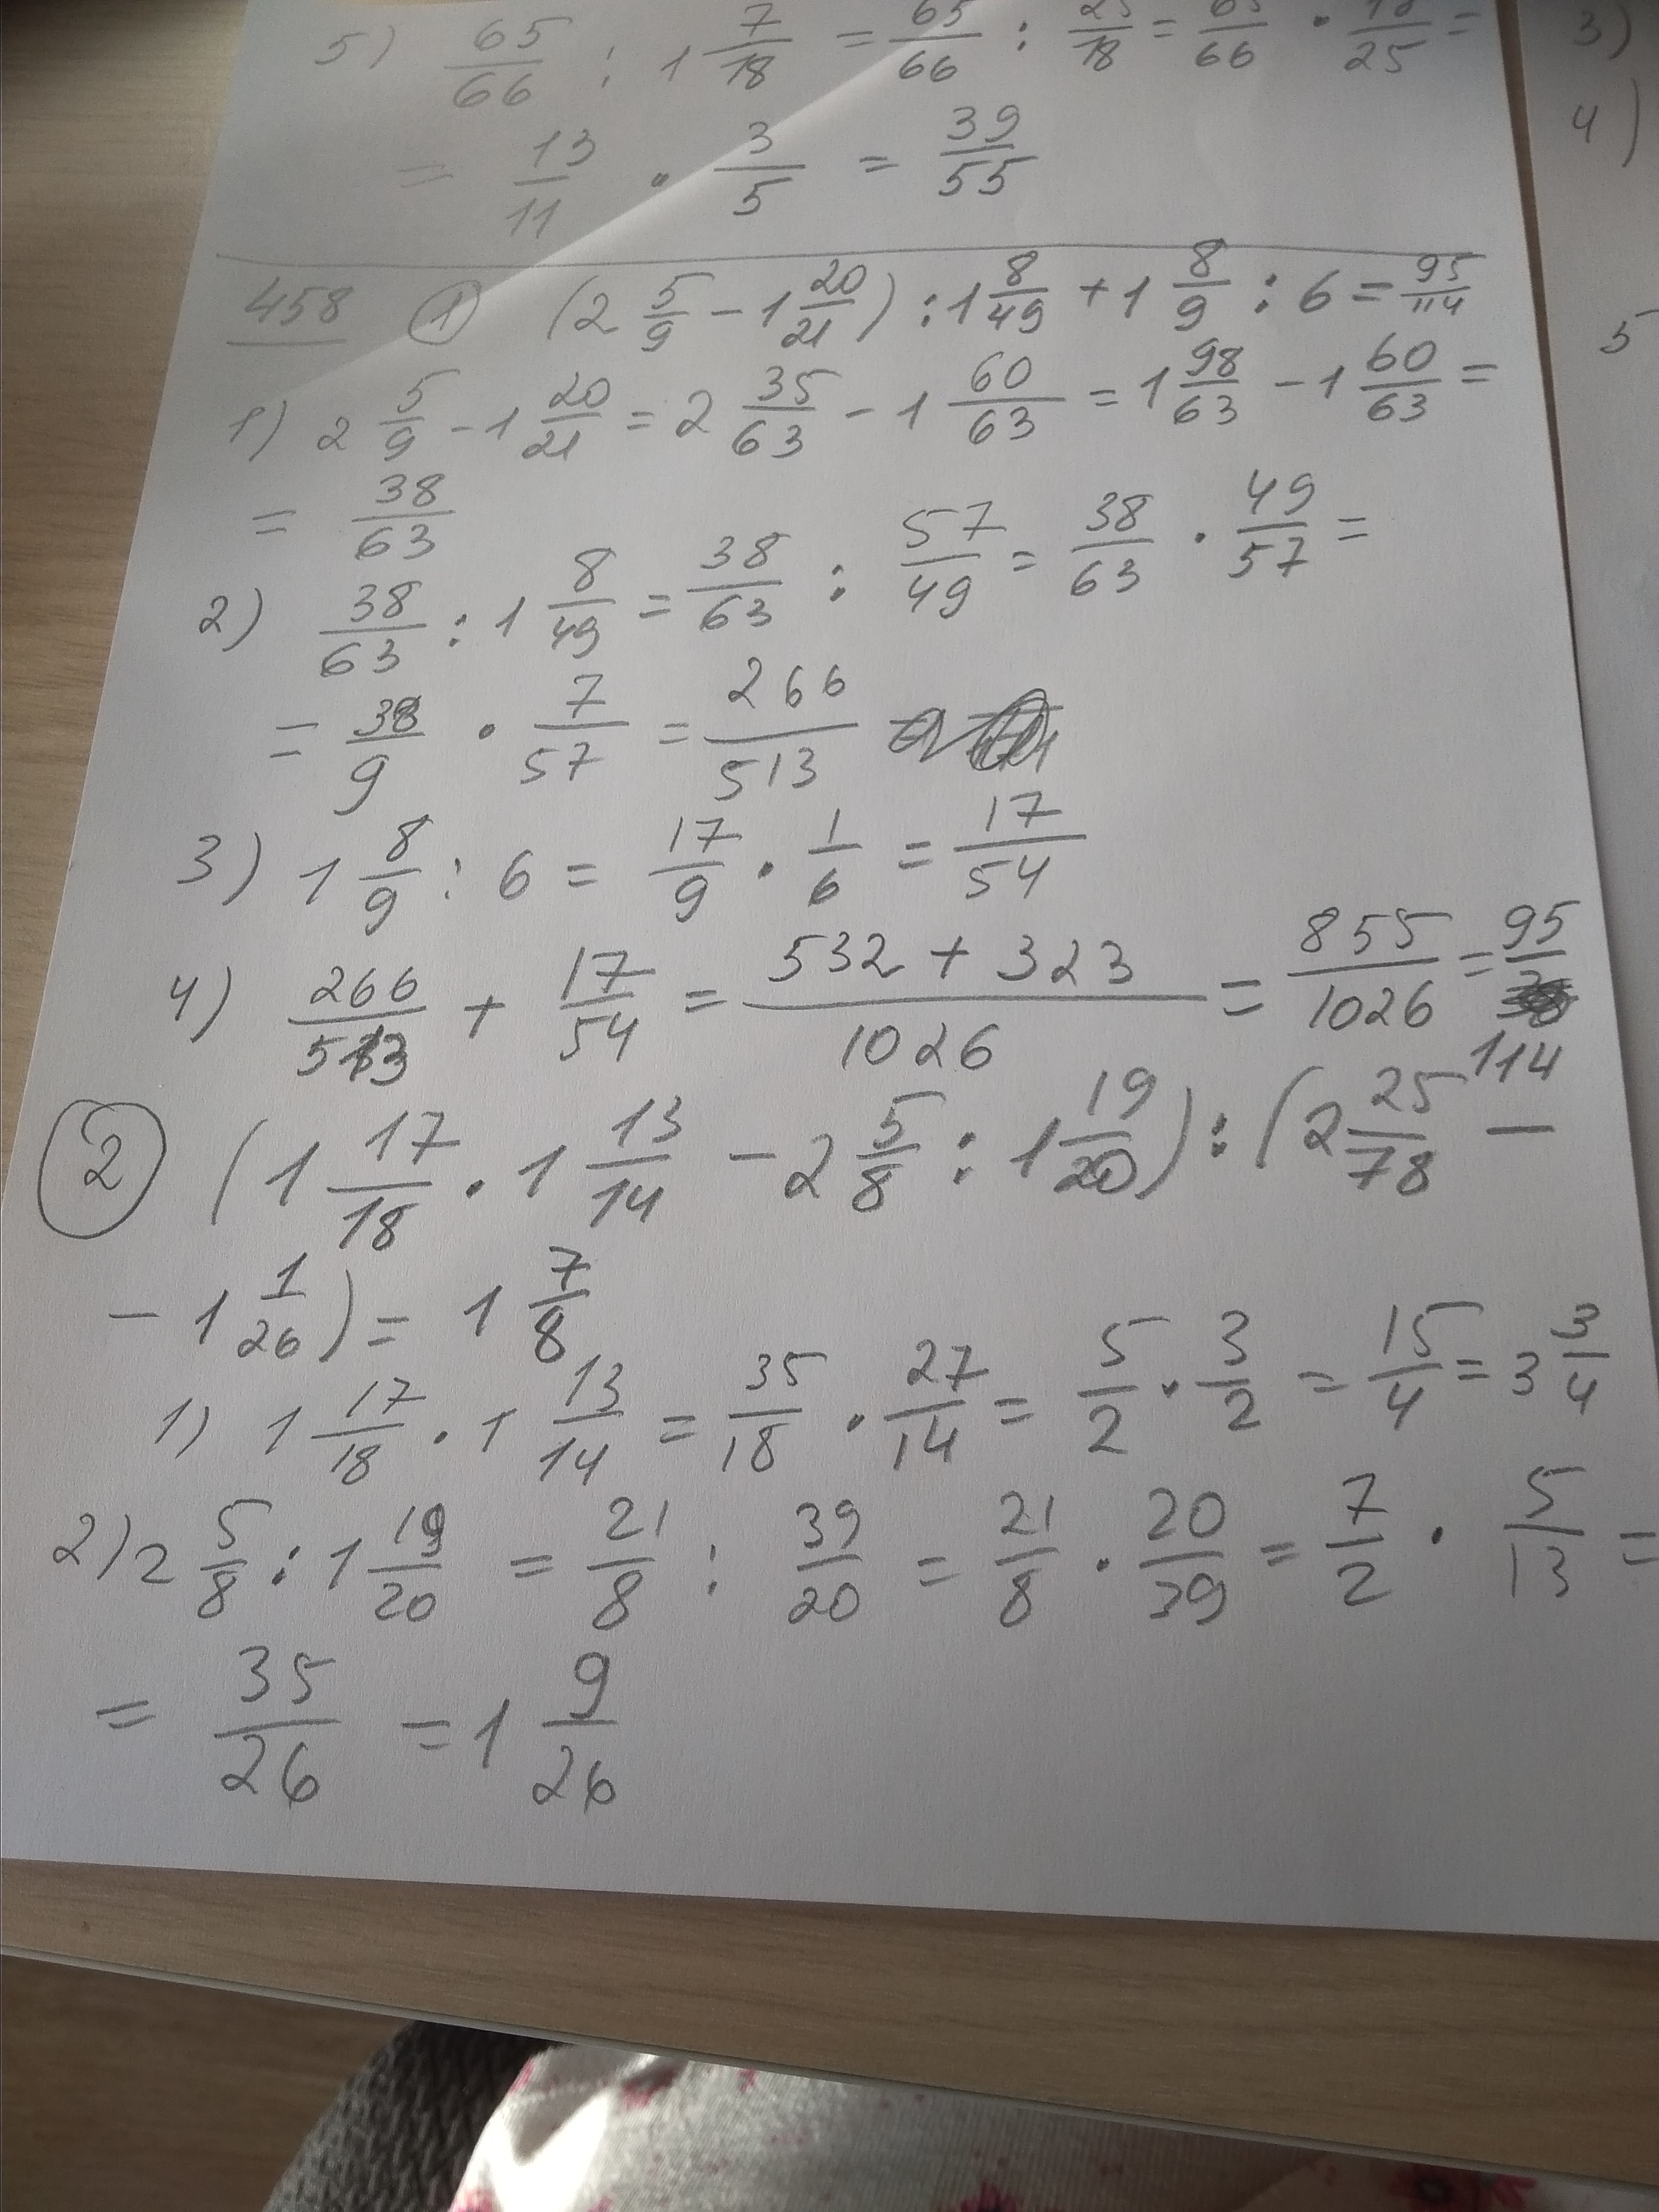 5) 65/66 : 1 7/18 = 65/66 : 25/18 = 65/66 · 18/25 =
= 13/11 · 3/5 = 39/55
458 ① (2 5/9 - 1 20/21) : 1 8/49 + 1 8/9 : 6 = 95/114
1) 2 5/9 - 1 20/21 = 2 35/63 - 1 60/63 = 1 98/63 - 1 60/63 =
= 38/63
2) 38/63 : 1 8/49 = 38/63 : 57/49 = 38/63 · 49/57 =
= 38/9 · 7/57 = 266/513
3) 1 8/9 : 6 = 17/9 · 1/6 = 17/54
4) 266/513 + 17/54 = (532 + 323)/1026 = 855/1026 = 95/114
② (1 17/18 · 1 13/14 - 2 5/8 : 1 19/20) : (2 25/78 -
- 1 1/26) = 1 7/8
1) 1 17/18 · 1 13/14 = 35/18 · 27/14 = 5/2 · 3/2 = 15/4 = 3 3/4
2) 2 5/8 : 1 19/20 = 21/8 : 39/20 = 21/8 · 20/39 = 7/2 · 5/13 =
= 35/26 = 1 9/26
3)
4)
5